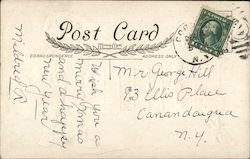 Post Card
CORRESPONDENCE
ADDRESS ONLY
Wish you a
merry xmas
and a happy
new year
Mildred R
Mr George Hill
23 Ellis Place
Canandaigua
N.Y.
N.Y.